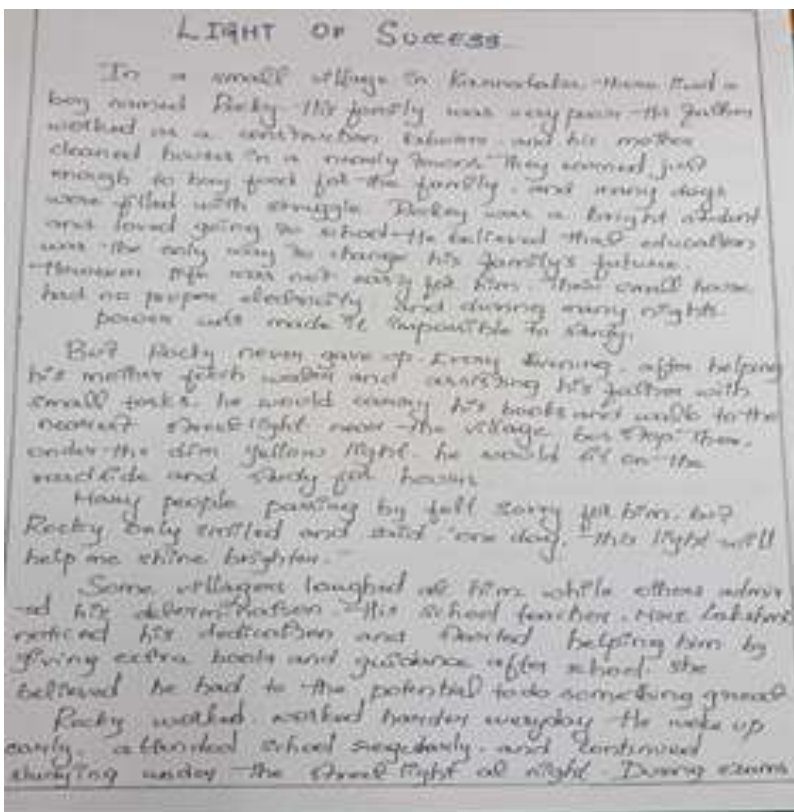 LIGHT OF SUCCESS
In a small village in Karnataka there lived a
boy named Rocky His family was very poor His father
worked as a construction and his mother
cleaned houses in a nearby They earned just
enough to buy food for the family. and many days
were filled with struggle Rocky was a bright student
and loved going to school He believed that education
was the only way to change his family's future.
However life was not easy for him. Their small house
had no proper electricity and during many nights
power cuts made it impossible to study.
But Rocky never gave up. Every Evening, after helping
his mother fetch water and assisting his father with
small tasks. he would carry his books and walk to the
nearest street light near the village bus stop There,
under the dim yellow light. he would sit on the
roadside and study for hours
Many people passing by felt sorry for him. but
Rocky only smiled and said, "one day, this light will
help me shine brighter."
Some villagers laughed at him while others admir
-ed his determination His school teacher. Mrs Lakshmi
noticed his dedication and started helping him by
giving extra books and guidance after school. she
believed he had to the potential to do something great
Rocky worked. worked harder everyday He woke up
early. attended school regularly. and continued
studying under the street light at night. During exams